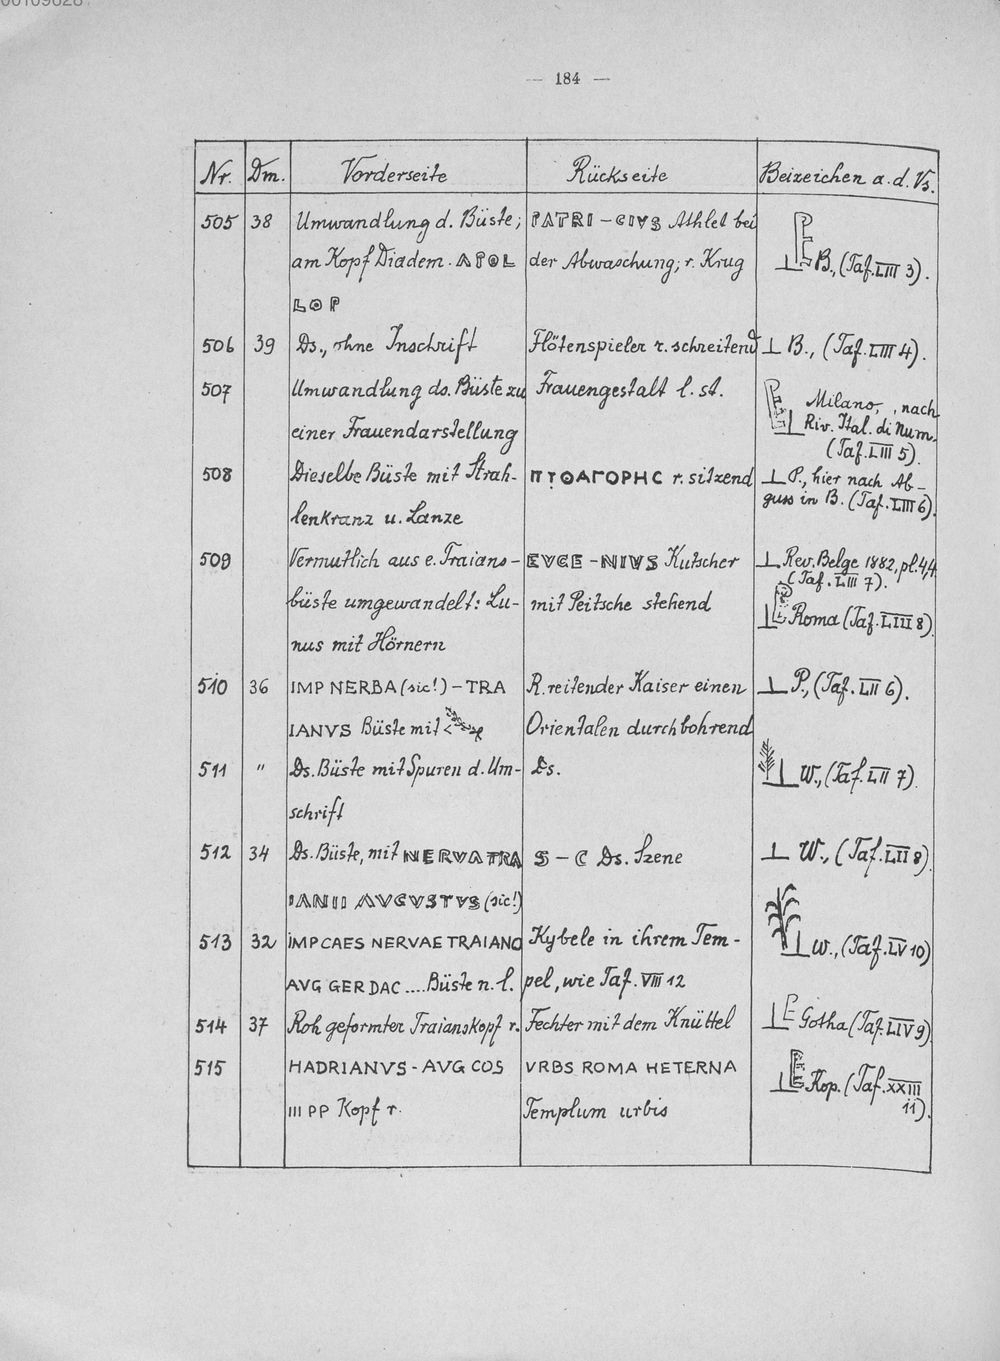 00109828
— 184 —
Nr. Dm. Vorderseite Rückseite Beizeichen a. d. Vs.
505 38 Umwandlung d. Büste; PATRI – CIVS Athlet bei
am Kopf Diadem. APOL der Abwaschung; r. Krug B., (Taf. LIII 3).
LOP
506 39 Ds., ohne Inschrift Flötenspieler r. schreitend B., (Taf. LIII 4).
507 Umwandlung ds. Büste zu Frauengestalt l. st. Milano, nach
einer Frauendarstellung Riv. Ital. di Num.
(Taf. LIII 5).
508 Dieselbe Büste mit Strah- ΠΥΘΑΓΟΡΗC r. sitzend P., hier nach Ab-
lenkranz u. Lanze guss in B. (Taf. LIII 6).
509 Vermutlich aus e. Traians- EVGE – NIVS Kutscher Rev. Belge 1882, pl. 4,4
(Taf. LIII 7).
büste umgewandelt: Lu- mit Peitsche stehend Roma (Taf. LIII 8)
nus mit Hörnern
510 36 IMP NERBA (sic!) – TRA R. reitender Kaiser einen P., (Taf. LII 6).
IANVS Büste mit < Orientalen durchbohrend
511 " Ds. Büste mit Spuren d. Um- Ds. W., (Taf. LII 7).
schrift
512 34 Ds. Büste, mit NERVA TRA S – C Ds. Szene W., (Taf. LII 8)
IANII AVGVSTVS (sic!)
513 32 IMP CAES NERVAE TRAIANO Kybele in ihrem Tem- W., (Taf. LV 10)
AVG GER DAC .... Büste n. l. pel, wie Taf. VIII 12
514 37 Roh geformter Traianskopf r. Fechter mit dem Knüttel Gotha (Taf. LIV 9)
515 HADRIANVS - AVG COS VRBS ROMA HETERNA Kop. (Taf. XXIII
III PP Kopf r. Templum urbis 11).